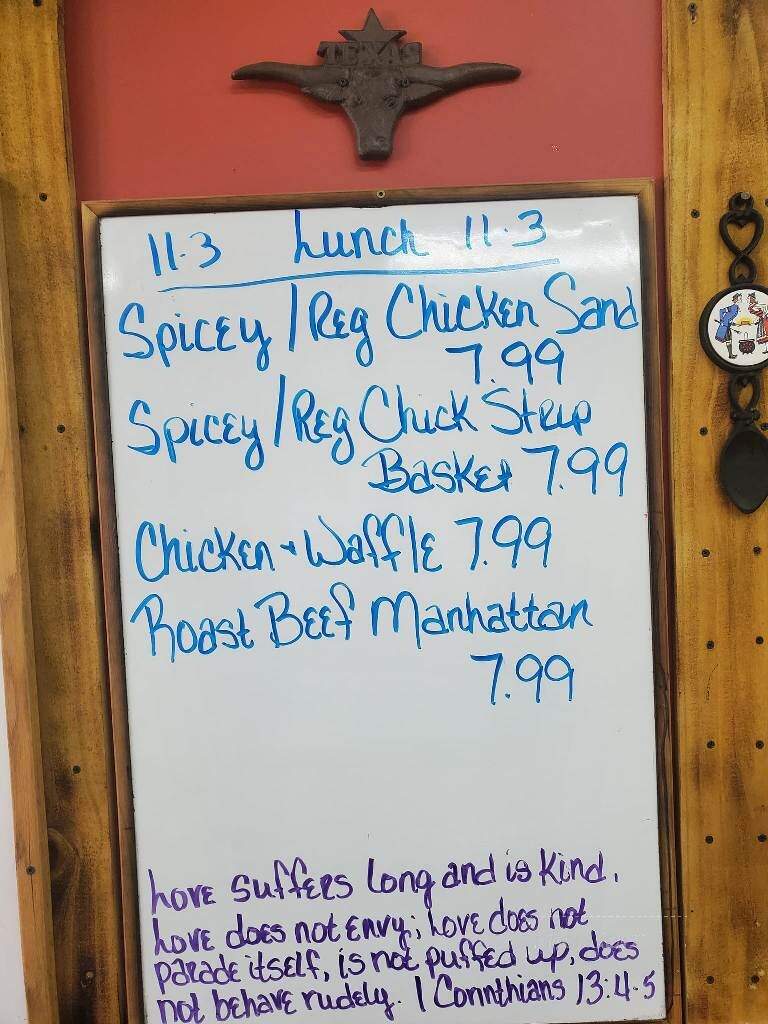 TEXAS
11-3 Lunch 11-3
Spicey/Reg Chicken Sand
7.99
Spicey/Reg Chick Strip
Basket 7.99
Chicken + Waffle 7.99
Roast Beef Manhattan
7.99
Love suffers long and is kind.
Love does not envy; Love does not
parade itself, is not puffed up, does
not behave rudely. 1 Cornthians 13:4-5